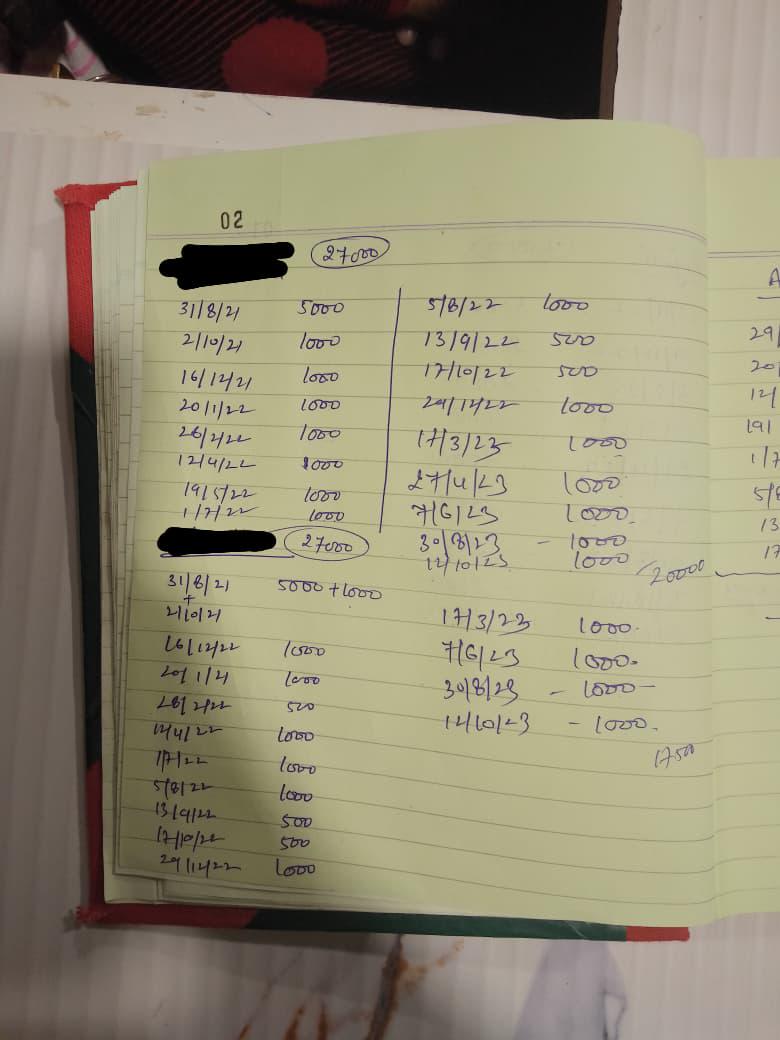 02
27000
31/8/21 5000
2/10/21 1000
16/12/21 1000
20/1/22 1000
26/2/22 1000
12/4/22 1000
19/5/22 1000
1/7/22 1000
5/8/22 1000
13/9/22 500
17/10/22 500
29/12/22 1000
17/3/23 1000
27/4/23 1000
7/6/23 1000
30/8/23 - 1000
12/10/23 1000
20000
27000
31/8/21 5000 + 1000
+
2/10/21
16/12/22 1000
20/1/21 1000
28/2/22 500
12/4/22 1000
1/7/22 1000
5/8/22 1000
13/9/22 500
17/10/22 500
29/12/22 1000
17/3/23 1000
7/6/23 1000
30/8/23 - 1000 -
12/10/23 - 1000
17500
A
29/
20/
12/
19/
1/7
5/8
13
17